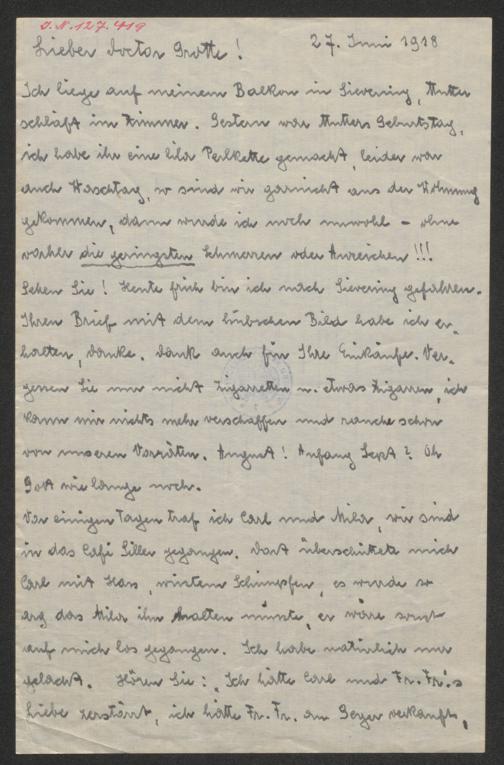 I.N. 127.419
Lieber Doctor Grotte! 27. Juni 1918
Ich liege auf meinem Balkon in Sievering, Mutter
schläft im Zimmer. Gestern war Mutters Geburtstag,
ich habe ihr eine lila Perlkette gemacht, leider war
auch Waschtag, so sind wir garnicht aus der Wohnung
gekommen, dann wurde ich noch unwohl – ohne
vorher die geringsten Schmerzen oder Anzeichen!!!
Sehen Sie! Heute früh bin ich nach Sievering gefahren.
Ihren Brief mit dem hübschen Bild habe ich er-
halten, danke. Dank auch für Ihre Einkäufe. Ver-
gessen Sie nur nicht Zigarretten u. etwas Zigarren, ich
kann mir nichts mehr verschaffen und rauche schon
von unseren Vorräten. August! Anfang Sept? Oh
Gott wie lange noch.
Vor einigen Tagen traf ich Carl und Mila, wir sind
in das Café Siller gegangen. Dort überschüttete mich
Carl mit Hass, wüstem Schimpfen, es wurde so
arg das Mila ihn halten musste, er wäre sonst
auf mich los gegangen. Ich habe natürlich nur
gelacht. Hören Sie: Ich hätte Carl und Fr. Fr.'s
Liebe zerstört, ich hätte Fr. Fr. an Geyer verkauft,